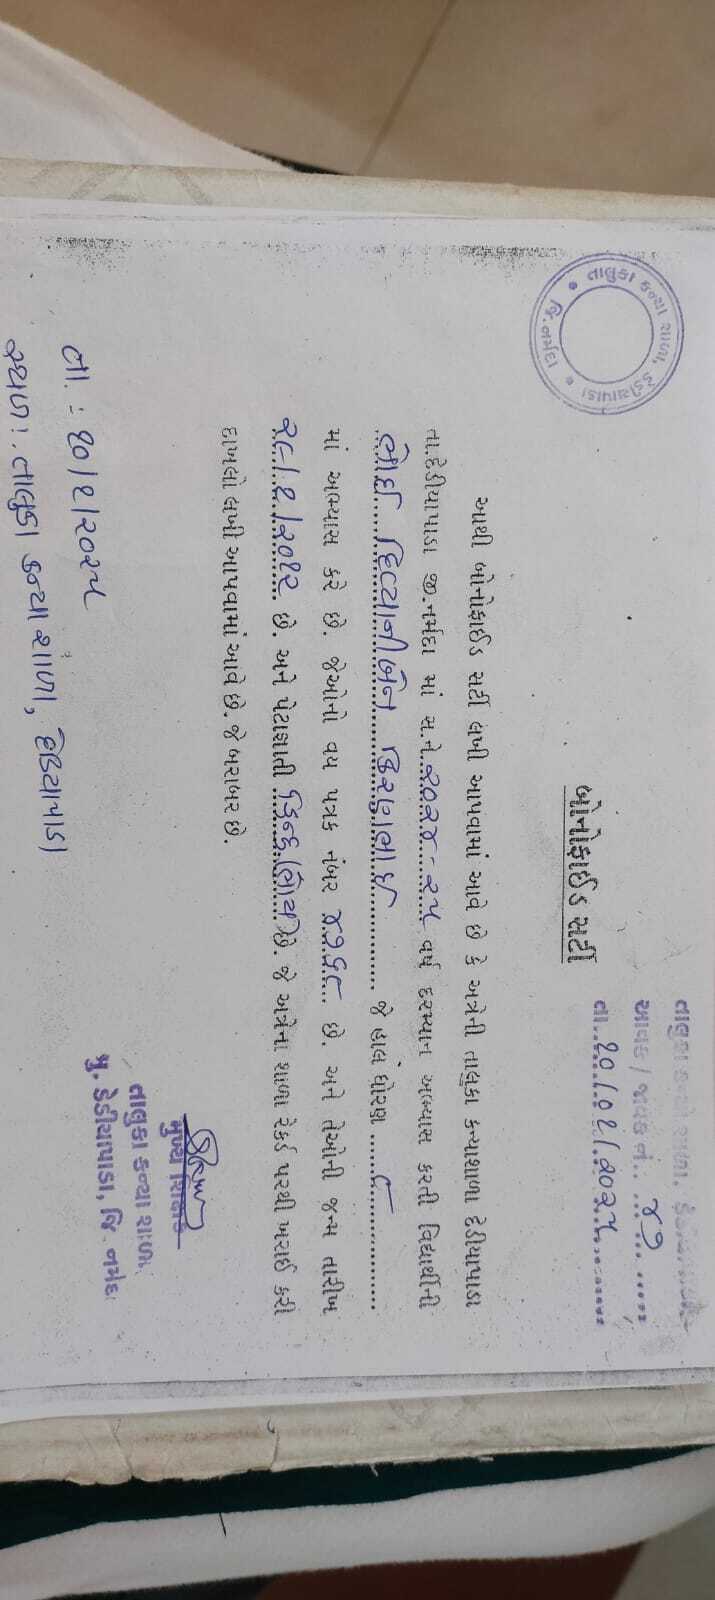 તાલુકા કન્યા શાળા, ડેડીયાપાડા
જિ. નર્મદા
તાલુકા કન્યા શાળા, ડેડીયાપાડા
આવક / જાવક નં. ૪૭
તા. ૧૦/૦૧/૨૦૨૫
બોનોફાઈડ સર્ટી
આથી બોનોફાઈડ સર્ટી લખી આપવામાં આવે છે કે અત્રેની તાલુકા કન્યાશાળા દેડીયાપાડા
તા.દેડીયાપાડા જી.નર્મદા માં સ.ને ૨૦૨૪-૨૫ વર્ષ દરમ્યાન અભ્યાસ કરતી વિદ્યાર્થીની
દિવ્યાનીબેન કિરણભાઈ જે હાલ ધોરણ ૮
માં અભ્યાસ કરે છે. જેઓનો વય પત્રક નંબર ૪૭૬૮ છે. અને તેઓની જન્મ તારીખ
૨૮/૧/૨૦૧૨ છે. અને પેટાજાતી હિન્દુ છે. જે અત્રેના શાળા રેકર્ડ પરથી ખરાઈ કરી
દાખલો લખી આપવામાં આવે છે. જે બરાબર છે.
તા. : ૧૦/૧/૨૦૨૫
સ્થળ : તાલુકા કન્યા શાળા, દેડિયાપાડા
મુખ્ય શિક્ષક
તાલુકા કન્યા શાળા
મુ. ડેડીયાપાડા, જિ. નર્મદા